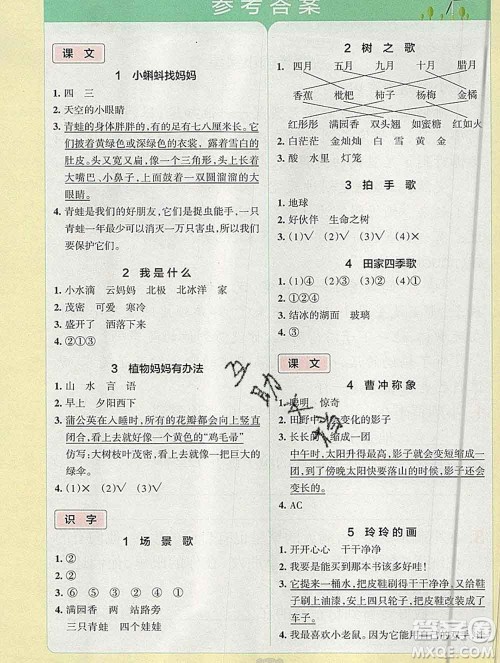 参考答案
课文
1 小蝌蚪找妈妈
1. 四 三
2. 天空的小眼睛
3. 青蛙的身体胖胖的，有的足有七八厘米长呢！它
们披着黄绿色或深绿色的衣裳，露着雪白雪白的
肚皮。头又宽又扁，像一个三角形。头上长着
大嘴巴、小鼻子，上面嵌着一双圆溜溜的大
眼睛。
4. 青蛙是我们的好朋友，它们是捉虫能手，一只
青蛙一年可以消灭一万只害虫，所以我们要保
护它们。
2 我是什么
1. 小水滴 云妈妈 北极 北冰洋 国家
2. 茂密 可爱 寒冷
3. 盛开 洒落下来
4. ②①③
3 植物妈妈有办法
1. 山 水 言 语
2. 早上 夕阳西下
3. 蒲公英在入睡时，所有的花瓣都会向上竖直
闭合，看上去就好像一个黄色的“鸡毛毽”
仿写：大树枝叶茂密，看上去就像一把巨大的
绿伞。
4. (1)√ (2)√
识字
1 场景歌
1. ②
2. ②
3. ⑥ ⑤ ② ④ ③ ①
4. 满园香 两 站路旁
三只青蛙 四个娃娃
2 树之歌
1. 四月 五月 九月 十月 腊月
香蕉 枇杷 柿子 杨梅 金橘
红彤彤 满园香 双头翘 如蜜糖 红似火
2. 白茫茫 金灿灿 白雪 黄金
3. 酸 水里 灯笼
3 拍手歌
1. 地球
2. 好伙伴 生命之树
3. (1)√ (2)√ (3)√
4 田家四季歌
1. (1)④ (2)①
2. (1)③ (2)②
3. 结冰的湖面 玻璃
课文
4 曹冲称象
1. 聪明 惊奇
2. 田野中的会变化的影子
3. 长长的 缩成一团
中午时，太阳升得最高，影子就会缩成一
团；到了傍晚太阳快要落山的时候，影子还会
变长的。
4. AC
5 玲玲的画
1. 脏兮兮 开心 干干净净
2. 我要是能用那本书该多好哇！
3. 它提来一桶水，把皮鞋刷得干干净净，又给皮
鞋上油漆，漆得亮亮的，最后把皮鞋改造成了
车子。
4. 我最喜欢小老鼠。因为它能用自己
作业帮
MXQE.COM